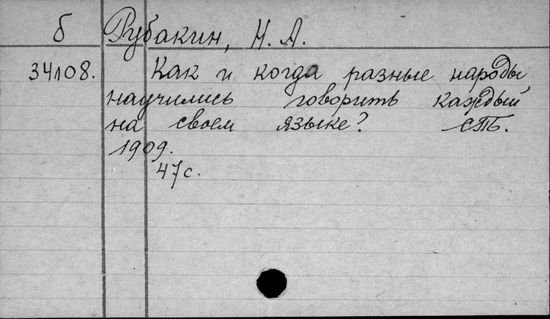 б Рубакин, Н. А.
34108. Как и когда разные народы
научились говорить каждый
на своем языке? СПб.
1909.
47 с.